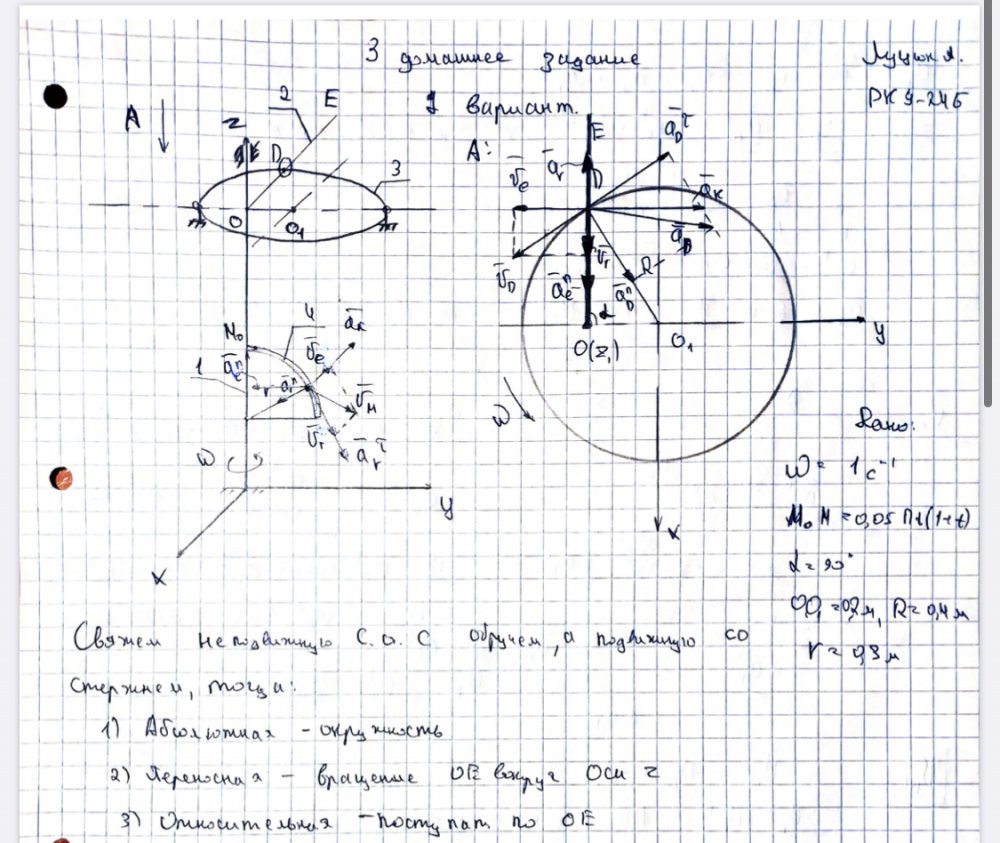 3 домашнее задание
Луцюк А.
РК9-24Б
1 вариант.
A
z
2
E
D
3
O
O₁
A:
E
D
a̅ᵣ
a̅_D^τ
v̅ₑ
a̅ₖ
a̅_D
v̅_D
v̅ᵣ
R
a̅ₑⁿ
a̅_Dⁿ
α
O(z₁)
O₁
y
x
ω
M₀
4
a̅ₖ
v̅ₑ
1
a̅ₑⁿ
r
a̅ᵣⁿ
v̅_M
v̅ᵣ
a̅ᵣ^τ
ω
y
x
Дано:
ω = 1 с⁻¹
M₀M = 0,05 πt(1+t)
α = 90°
OO₁ = 0,2 м, R = 0,4 м
r = 0,3 м
Свяжем неподвижную С.О. с обручем, а подвижную со
стержнем, тогда:
1) Абсолютная - окружность
2) Переносная - вращение OE вокруг оси z
3) Относительная - поступат. по OE